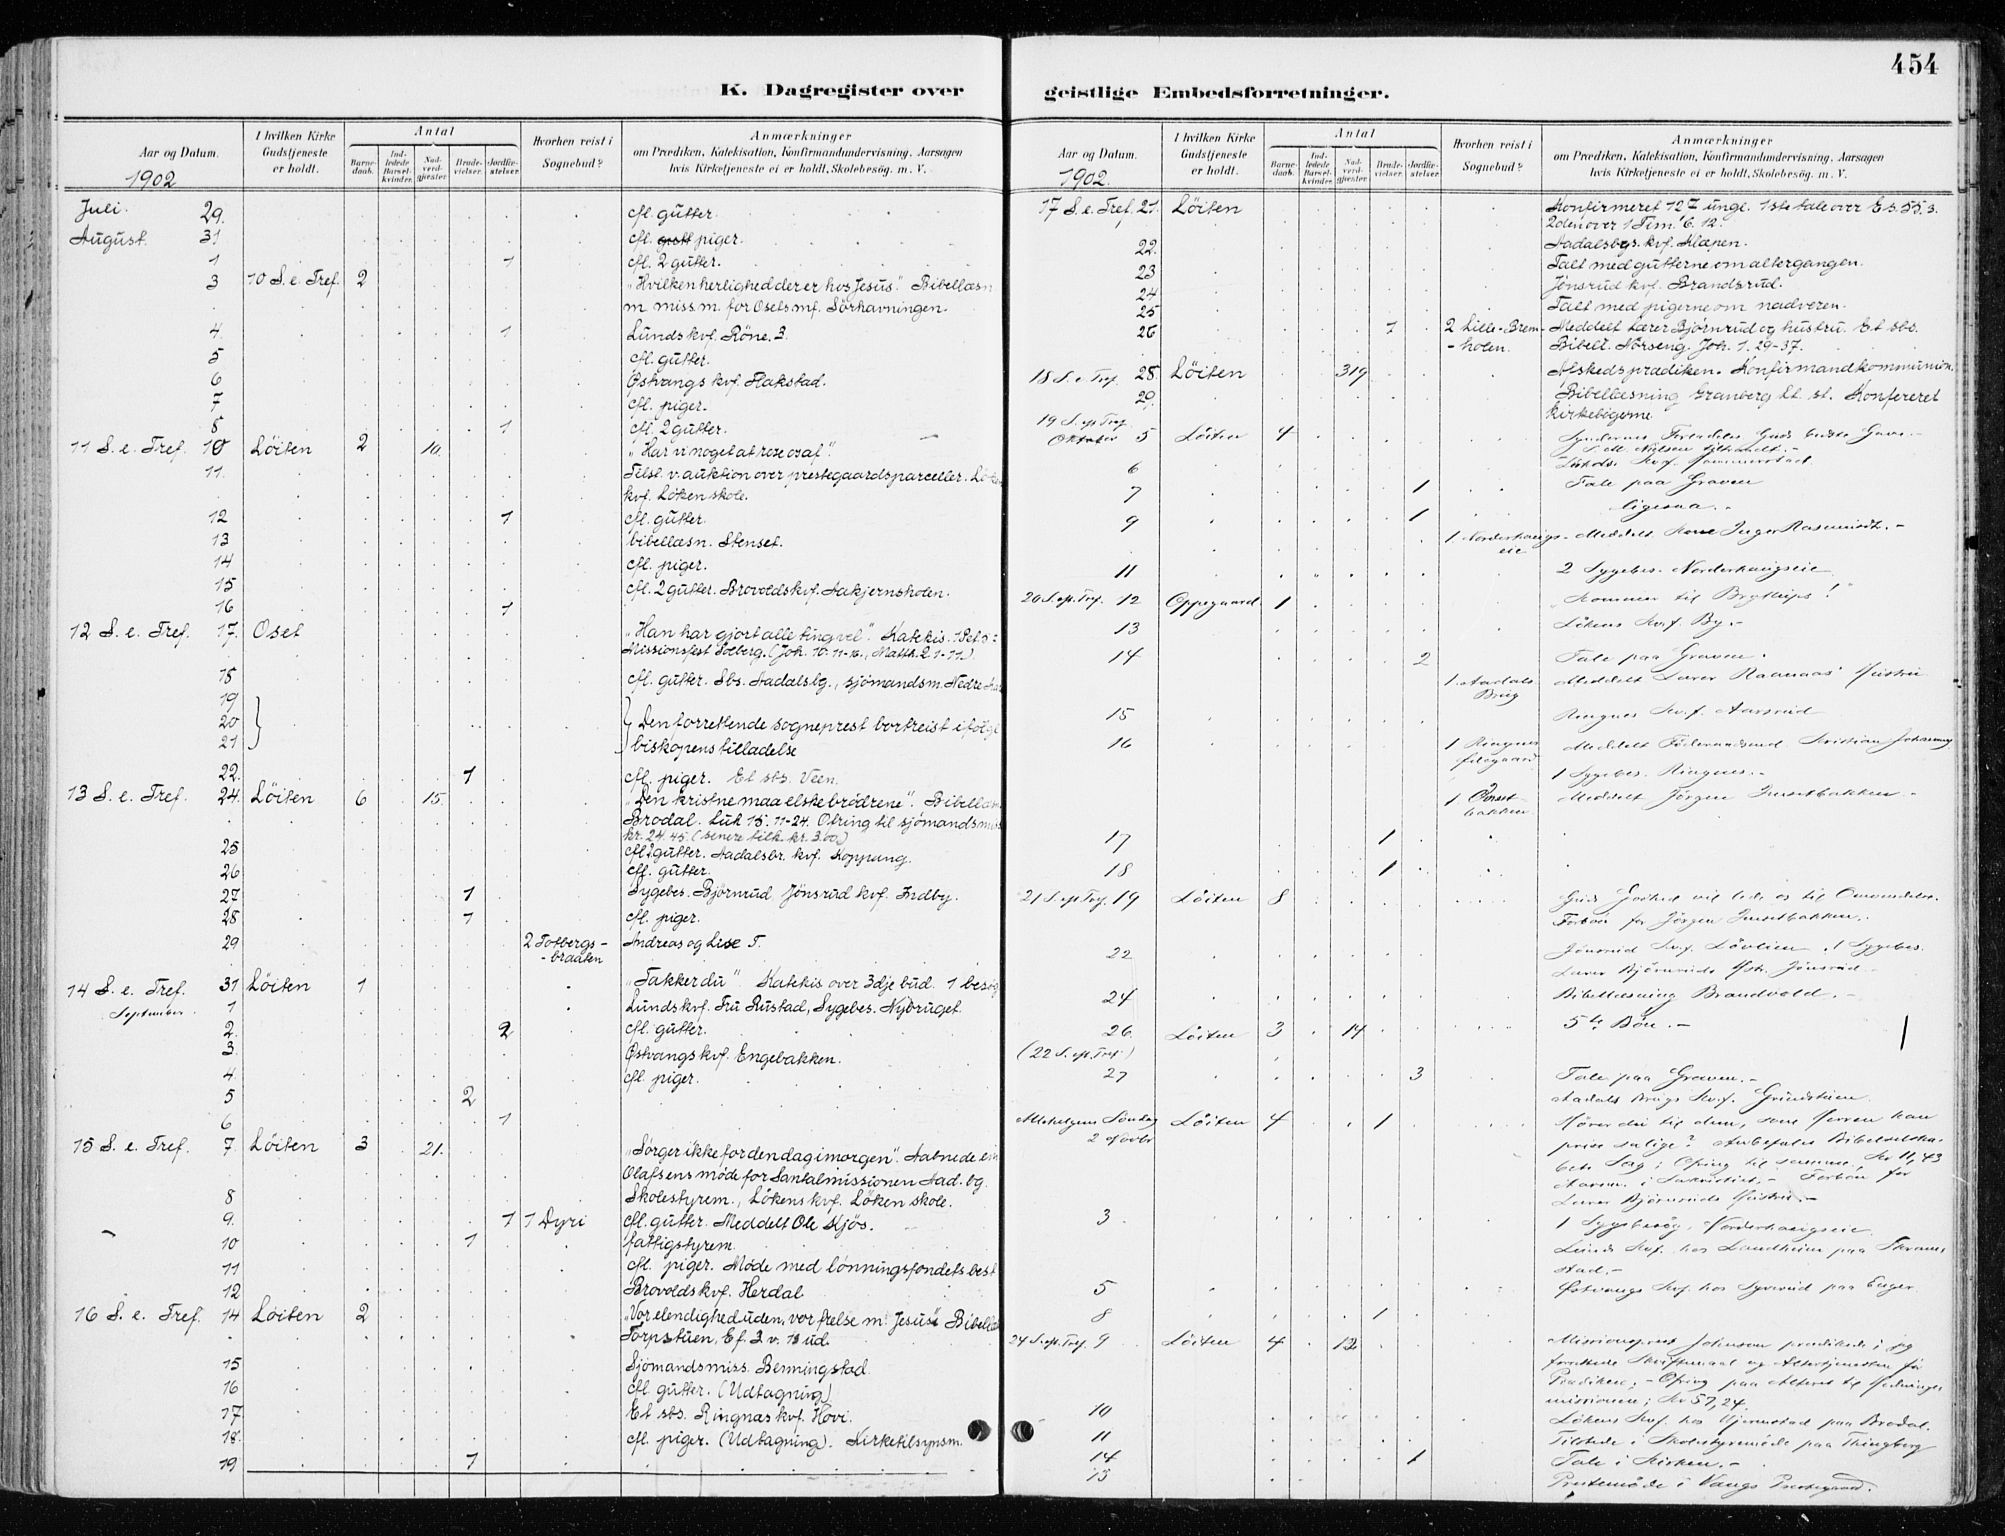 454
K. Dagregister over
Aar og Datum.
I hvilken Kirke Gudstjeneste er holdt.
Antal
Barnedaab.
Indledede Barselkvinder.
Nadverdgjester.
Brudevielser.
Jordfæstelser.
Hvorhen reist i Sognebud?
Anmærkninger
om Prædiken, Katekisation, Konfirmandundervisning. Aarsagen
hvis Kirketjeneste ei er holdt, Skolebesøg. m. V.
1902
Juli. 29. cfl. gutter.
August. 31 cfl. piger.
1 1 cfl. 2 gutter.
3 10 S. e. Tref. 2 "Hvilken herlighed der er hos Jesus". Bibellæsn
m. miss.m. for Osets mf. Sörhavningen.
4. 1 Lunds kvf. Röne. 3.
5 cfl. gutter.
6 Östvangs kvf. Flakstad.
7 cfl. piger.
8 1 cfl. 2 gutter.
11 S. e. Tref. 10 Löiten 2 10. "Har vi noget at rose os af".
11. Tilst. v. auktion over prestegaardsparceller.
kvf. Löken skole.
12 1 cfl. gutter.
13 bibellæsn. Stenset.
14 cfl. piger.
15 cfl. 2 gutter. Brovolds kvf. Aakjernsholen.
16 1
12 S. e. Tref. 17. Oset "Han har gjort alle ting vel". Katekis.
Missionsfest Solberg. (Joh. 10. 11-16., Matth. 2. 1-11.)
18 cfl. gutter. Sbs. Aadalsbg., sjömandsm. Nedre
19
20 Den forrettende sogneprest bortreist ifölge
21 biskopens tilladelse
22. 1 cfl. piger. Et sbs. Veen.
13 S. e. Tref. 24. Löiten 6 15. "Den kristne maa elske brödrene". Bibellæsn
Brodal. Luk 15. 11-24. Ofring til sjömandsmiss
kr. 24.45. (senere tilk. kr. 3.00)
25 cfl. 2 gutter. Aadalsbr. kvf. Koppang.
26 cfl. gutter.
27 1 Sygebes. Björnrud. Jönsrud kvf. Indby.
28 1 cfl. piger.
29 2 Tofbergs- Andreas og Lise T.
-braaten
14 S. e. Tref. 31 Löiten 1 "Takker du" Katekis over 3dje bud. 1 besög
September 1 Lunds kvf. Fru Rustad, Sygebes. Nybruget.
2. 2 cfl. gutter.
3. Östvangs kvf. Engebakken.
4. cfl. piger.
5 2
6 1
15 S. e. Tref. 7. Löiten 3 21. "Sörger ikke for den dag imorgen". Aabnede
Olafsens möde for Santalmissionen Aad. bg.
8 Skolestyrem., Lökens kvf. Löken skole.
9. 1 1 Dyri cfl. gutter. Meddelt Ole Kjös.
10 1 fattigstyrem.
11 cfl. piger. Möde med lönningsfondets best
12 Brovolds kvf. Herdal
16 S. e. Tref. 14 Löiten 2 "Vor elendighed uden, vor frelse m. Jesus" Bibellæ
Torpstuen, Ef. 3. v. 13 ud.
15 Sjömandsmiss. Benningstad.
16 cfl. gutter. (Udtagning)
17 Et sbs. Ringnas kvf. Hovi.
18. cfl. piger. (Udtagning). Kirketilsynsm.
19 1
geistlige Embedsforretninger.
Aar og Datum.
I hvilken Kirke Gudstjeneste er holdt.
Antal
Barnedaab.
Indledede Barselkvinder.
Nadverdgjester.
Brudevielser.
Jordfæstelser.
Hvorhen reist i Sognebud?
Anmærkninger
om Prædiken, Katekisation, Konfirmandundervisning. Aarsagen
hvis Kirketjeneste ei er holdt, Skolebesøg. m. V.
1902.
17 S. e. Tref. 21. Löiten Konfirmeret 127 ungl. 1ste tale over Es. 55. 3.
2den over 1 Tim. 6. 12.
22. Aadalsbgs. kvf. Klæpen.
23 Talt med gutterne om altergangen.
24 Jönsrud kvf. Brandsrud.
25 Talt med pigerne om nadveren.
26 1 2 Lille-Brem- Meddelt Lærer Björnrud og hustru. Et sbs.
-holen. Bibell. Nörseng. Joh. 1. 29-37.
18 S. e. Tref. 28. Löiten 319 Afskedsprædiken. Konfirmandkommunion.
29. Bibellæsning Granberg Et. st. Konfereret
kirkebögerne
19 S. ep. Tref.
Oktober 5 Löiten 4 Syndernes Forladelse Guds bedste Gave.-
6
7 1 Tale paa Graven
9 1 ligesaa.-
1 Norderhaugs- Meddelt Kone Inger Rasmusd.-
eie
11 2 Sygebes. Norderhaugseie
20 S. ep. Tref. 12 Oppegaard 1 "Kommer til Bryllups!"
13 Lökens Kv.f. By.-
14 2 Tale paa Graven.
1 Aadals Meddelt Lærer Raanaas' Hustru
Brug
15 Ringnes Kv.f. Aarsrud
16 1 Ringnes Meddelt Föderaadsmd. Kristian
1 Sygebes. Ringnes.-
1 Meddelt Jörgen
bakken
17 1
18 1
21 S. ep Tref. 19 Löiten 8 Guds Godhed vil lede os til Omvendelse.
Forbön for Jörgen
22 Jönsrud Kv.f. Lövlien. 1 Sygebes.
Lærer Björnruds Hstr. Jönsrud.-
24 Bibellæsning Brandvold.-
26 Löiten 3 14 5te Bön.-
(22 S. ep. Tref.)
27 3 Tale paa Graven.-
Aadals Brugs Kv.f. Grindstuen
Allehelgens Söndag Löiten 4 1 Hörer du til dem, som Herren kan
2 Novbr prise salige? Anbefales Bibelselska-
bets Sag; Ofring til samme, Kr 11,43
i Sakristiet.- Forbön for
Lærer Björnruds Hustru.-
3 1 Sygebesög, Norderhaugseie
Lunds Kvf. hos Landheim paa Skramstad.-
5 Östvangs Kvf. hos Syverud paa Enger
8 1
24 S. ep. Tref. 9 Löiten 4 12 Missionsprest Johnson prædikede; jeg
forrettede Skriftemaal og Altertjenesten för
Prædiken; - Ofring paa Alteret til Hedninge-
missionen; Kr 57,24.
10 Lökens Kvf. hos Hjermstad paa Brodal.
11 Tilstede i Skolestyremöde paa Thingberg
14 1 Tale i Kirken.-
15 Prestemöde i Vangs Prestegaard.